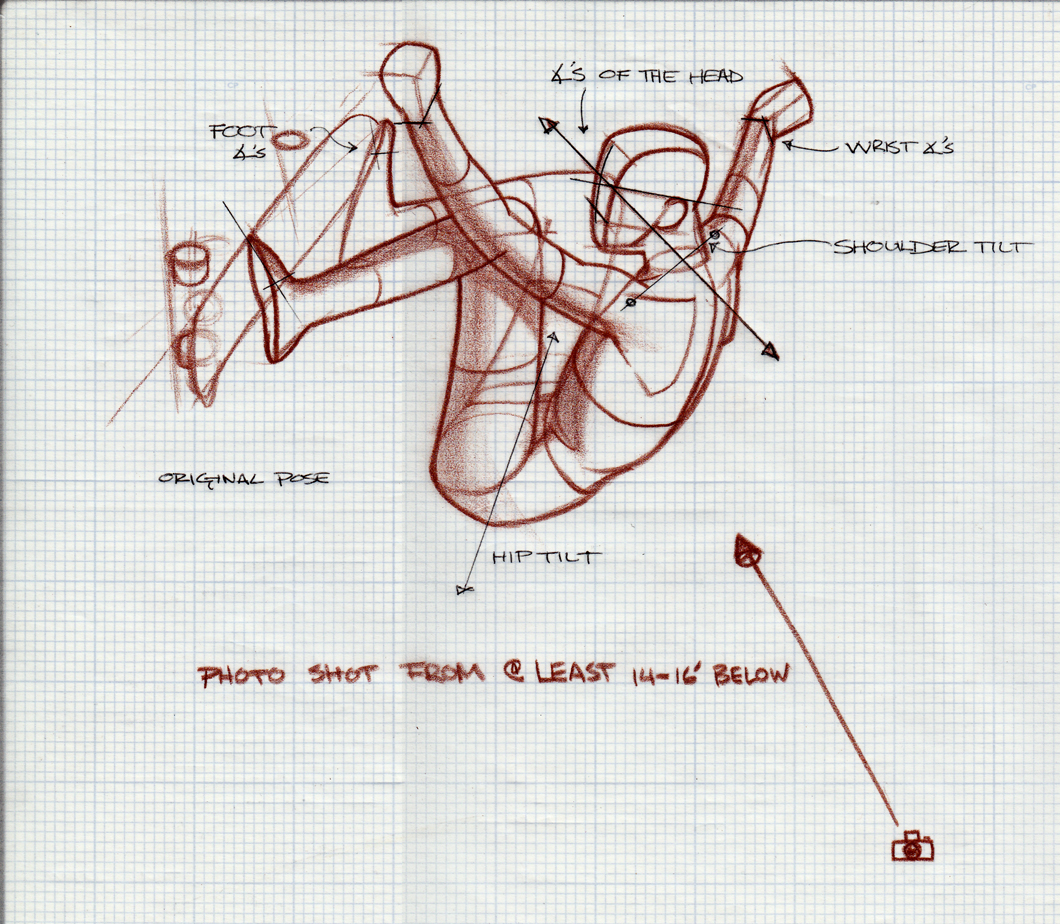 ∡'S OF THE HEAD
FOOT
∡'S
WRIST ∡'S
SHOULDER TILT
ORIGINAL POSE
HIP TILT
PHOTO SHOT FROM @ LEAST 14-16' BELOW